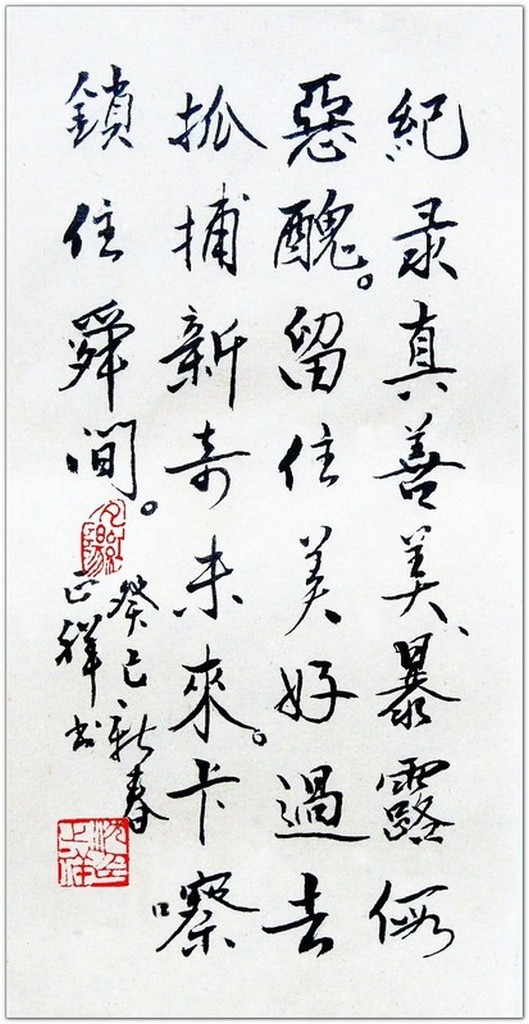 紀录真善美、暴露假
惡醜。留住美好過去
抓捕新奇未來。卡嚓
鎖住舜間。
癸巳新春
正祥书